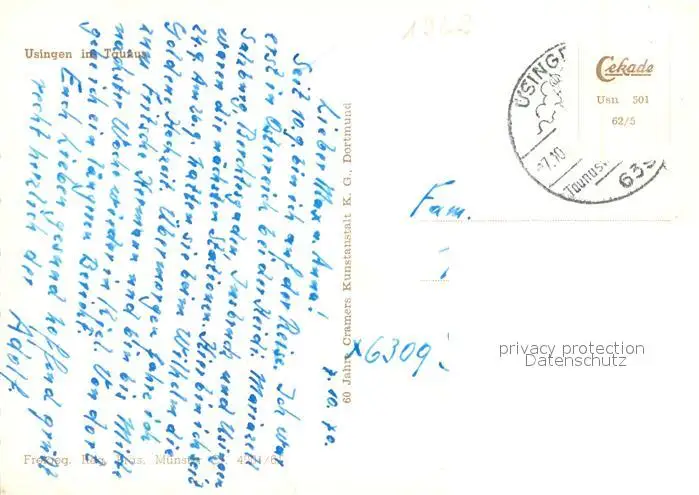 Usingen im Taunus
7. 10. 70.
Lieber Max u. Anna!
Seit 10 g bin ich auf der Reise. Ich war
erst in Österreich bei der Herdi. Mariazell
Salzburg, Berchtsgaden, Insbruck und Usingen
waren die nächsten Stationen. Hier bin ich seit
24.9. Am 26.9. hatten sie beim Wilhelm die
Goldene Hochzeit. Übermorgen fahre ich
zum Fritsche Hermann und bin bis Mitte
nächster Woche wieder in Kiel. Von dort
gebe ich ein längeren Bericht.
Euch Lieben gesund hoffend grüßt
recht herzlich der
Adolf.
60 Jahre Cramers Kunstanstalt K. G., Dortmund
Cekade
Usn 501
62/5
USINGE
7.10
Taunus
639
Fam.
x6309
privacy protection
Datenschutz